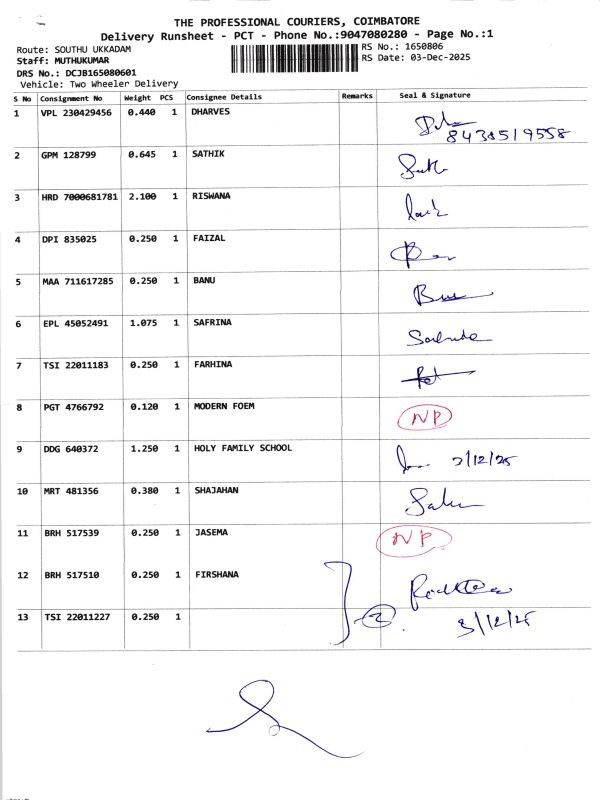 THE PROFESSIONAL COURIERS, COIMBATORE
Delivery Runsheet - PCT - Phone No.:9047080280 - Page No.:1
Route: SOUTHU UKKADAM RS No.: 1650806
Staff: MUTHUKUMAR RS Date: 03-Dec-2025
DRS No.: DCJB165080601
Vehicle: Two Wheeler Delivery
S No Consignment No Weight PCS Consignee Details Remarks Seal & Signature
1 VPL 230429456 0.440 1 DHARVES
2 GPM 128799 0.645 1 SATHIK
3 HRD 7000681781 2.100 1 RISWANA
4 DPI 835025 0.250 1 FAIZAL
5 MAA 711617285 0.250 1 BANU
6 EPL 45052491 1.075 1 SAFRINA
7 TSI 22011183 0.250 1 FARHINA
8 PGT 4766792 0.120 1 MODERN FOEM NP
9 DDG 640372 1.250 1 HOLY FAMILY SCHOOL 3/12/25
10 MRT 481356 0.380 1 SHAJAHAN
11 BRH 517539 0.250 1 JASEMA NP
12 BRH 517510 0.250 1 FIRSHANA
13 TSI 22011227 0.250 1 2 3/12/25